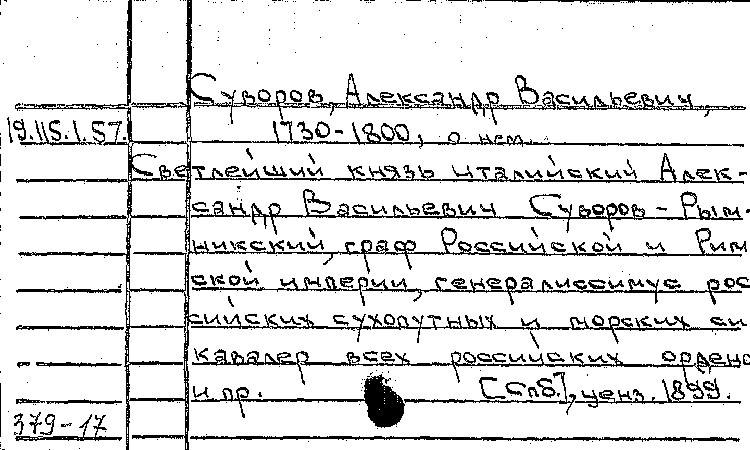 Суворов, Александр Васильевич,
19.115.1.57. 1730-1800, о нем.
Светлейший князь италийский Алек-
сандр Васильевич Суворов-Рым-
никский, граф Российской и Рим
ской империи, генералиссимус рос
сийских сухопутных и морских си
кавалер всех российских ордено
и пр. [Спб.], ценз. 1899.
379-17